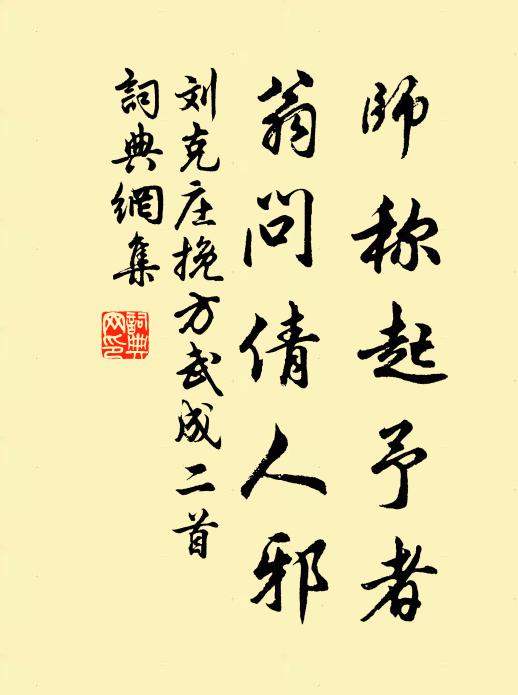 師称起予者
翁問倩人邪
刘克庄挽方武成二首
詞典網集
詞典
网印